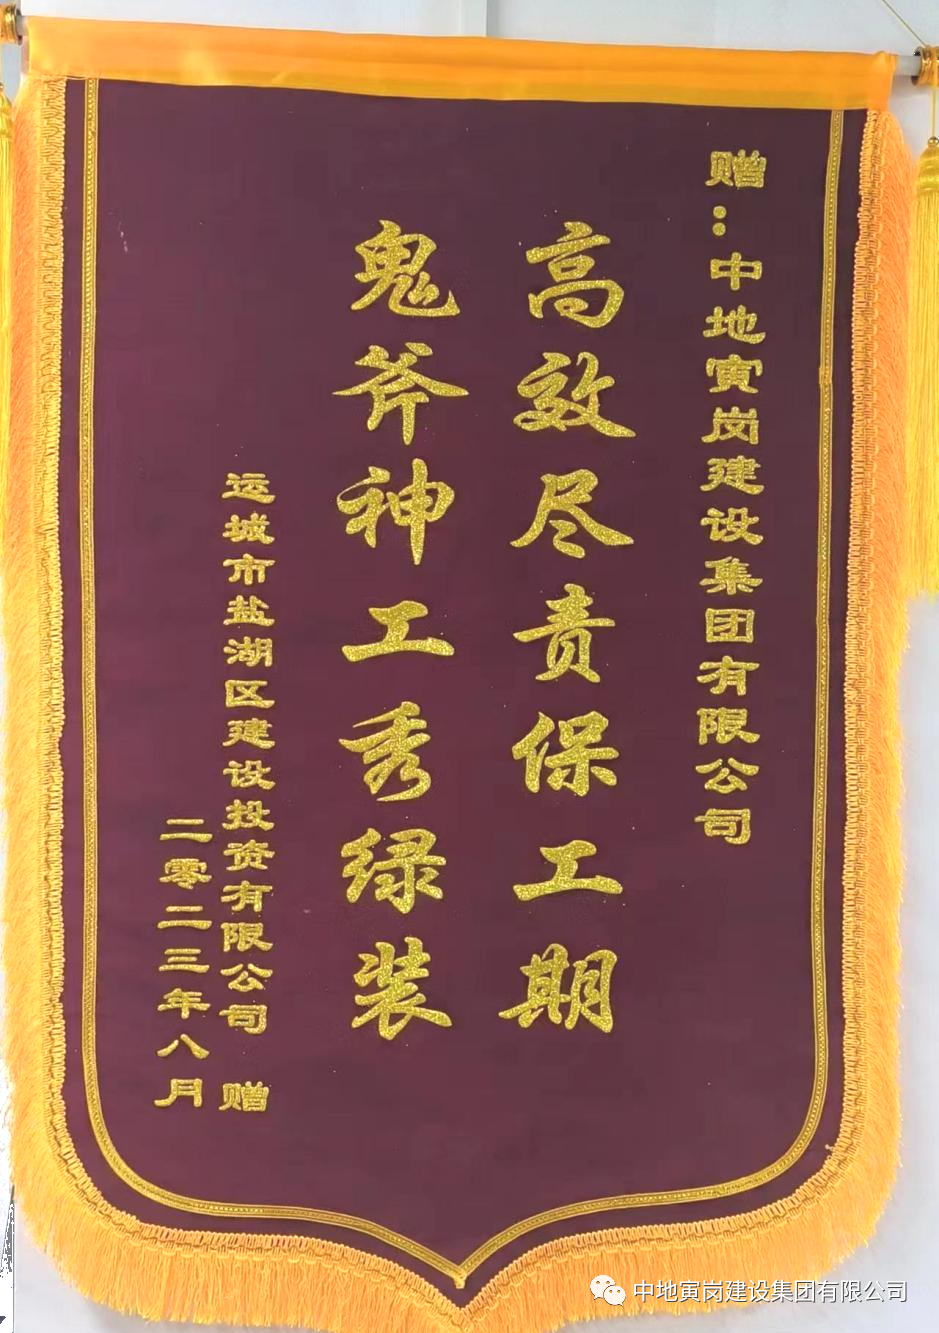 赠：中地寅岗建设集团有限公司
高效尽责保工期
鬼斧神工秀绿装
运城市盐湖区建设投资有限公司 赠
二零二三年八月
中地寅岗建设集团有限公司